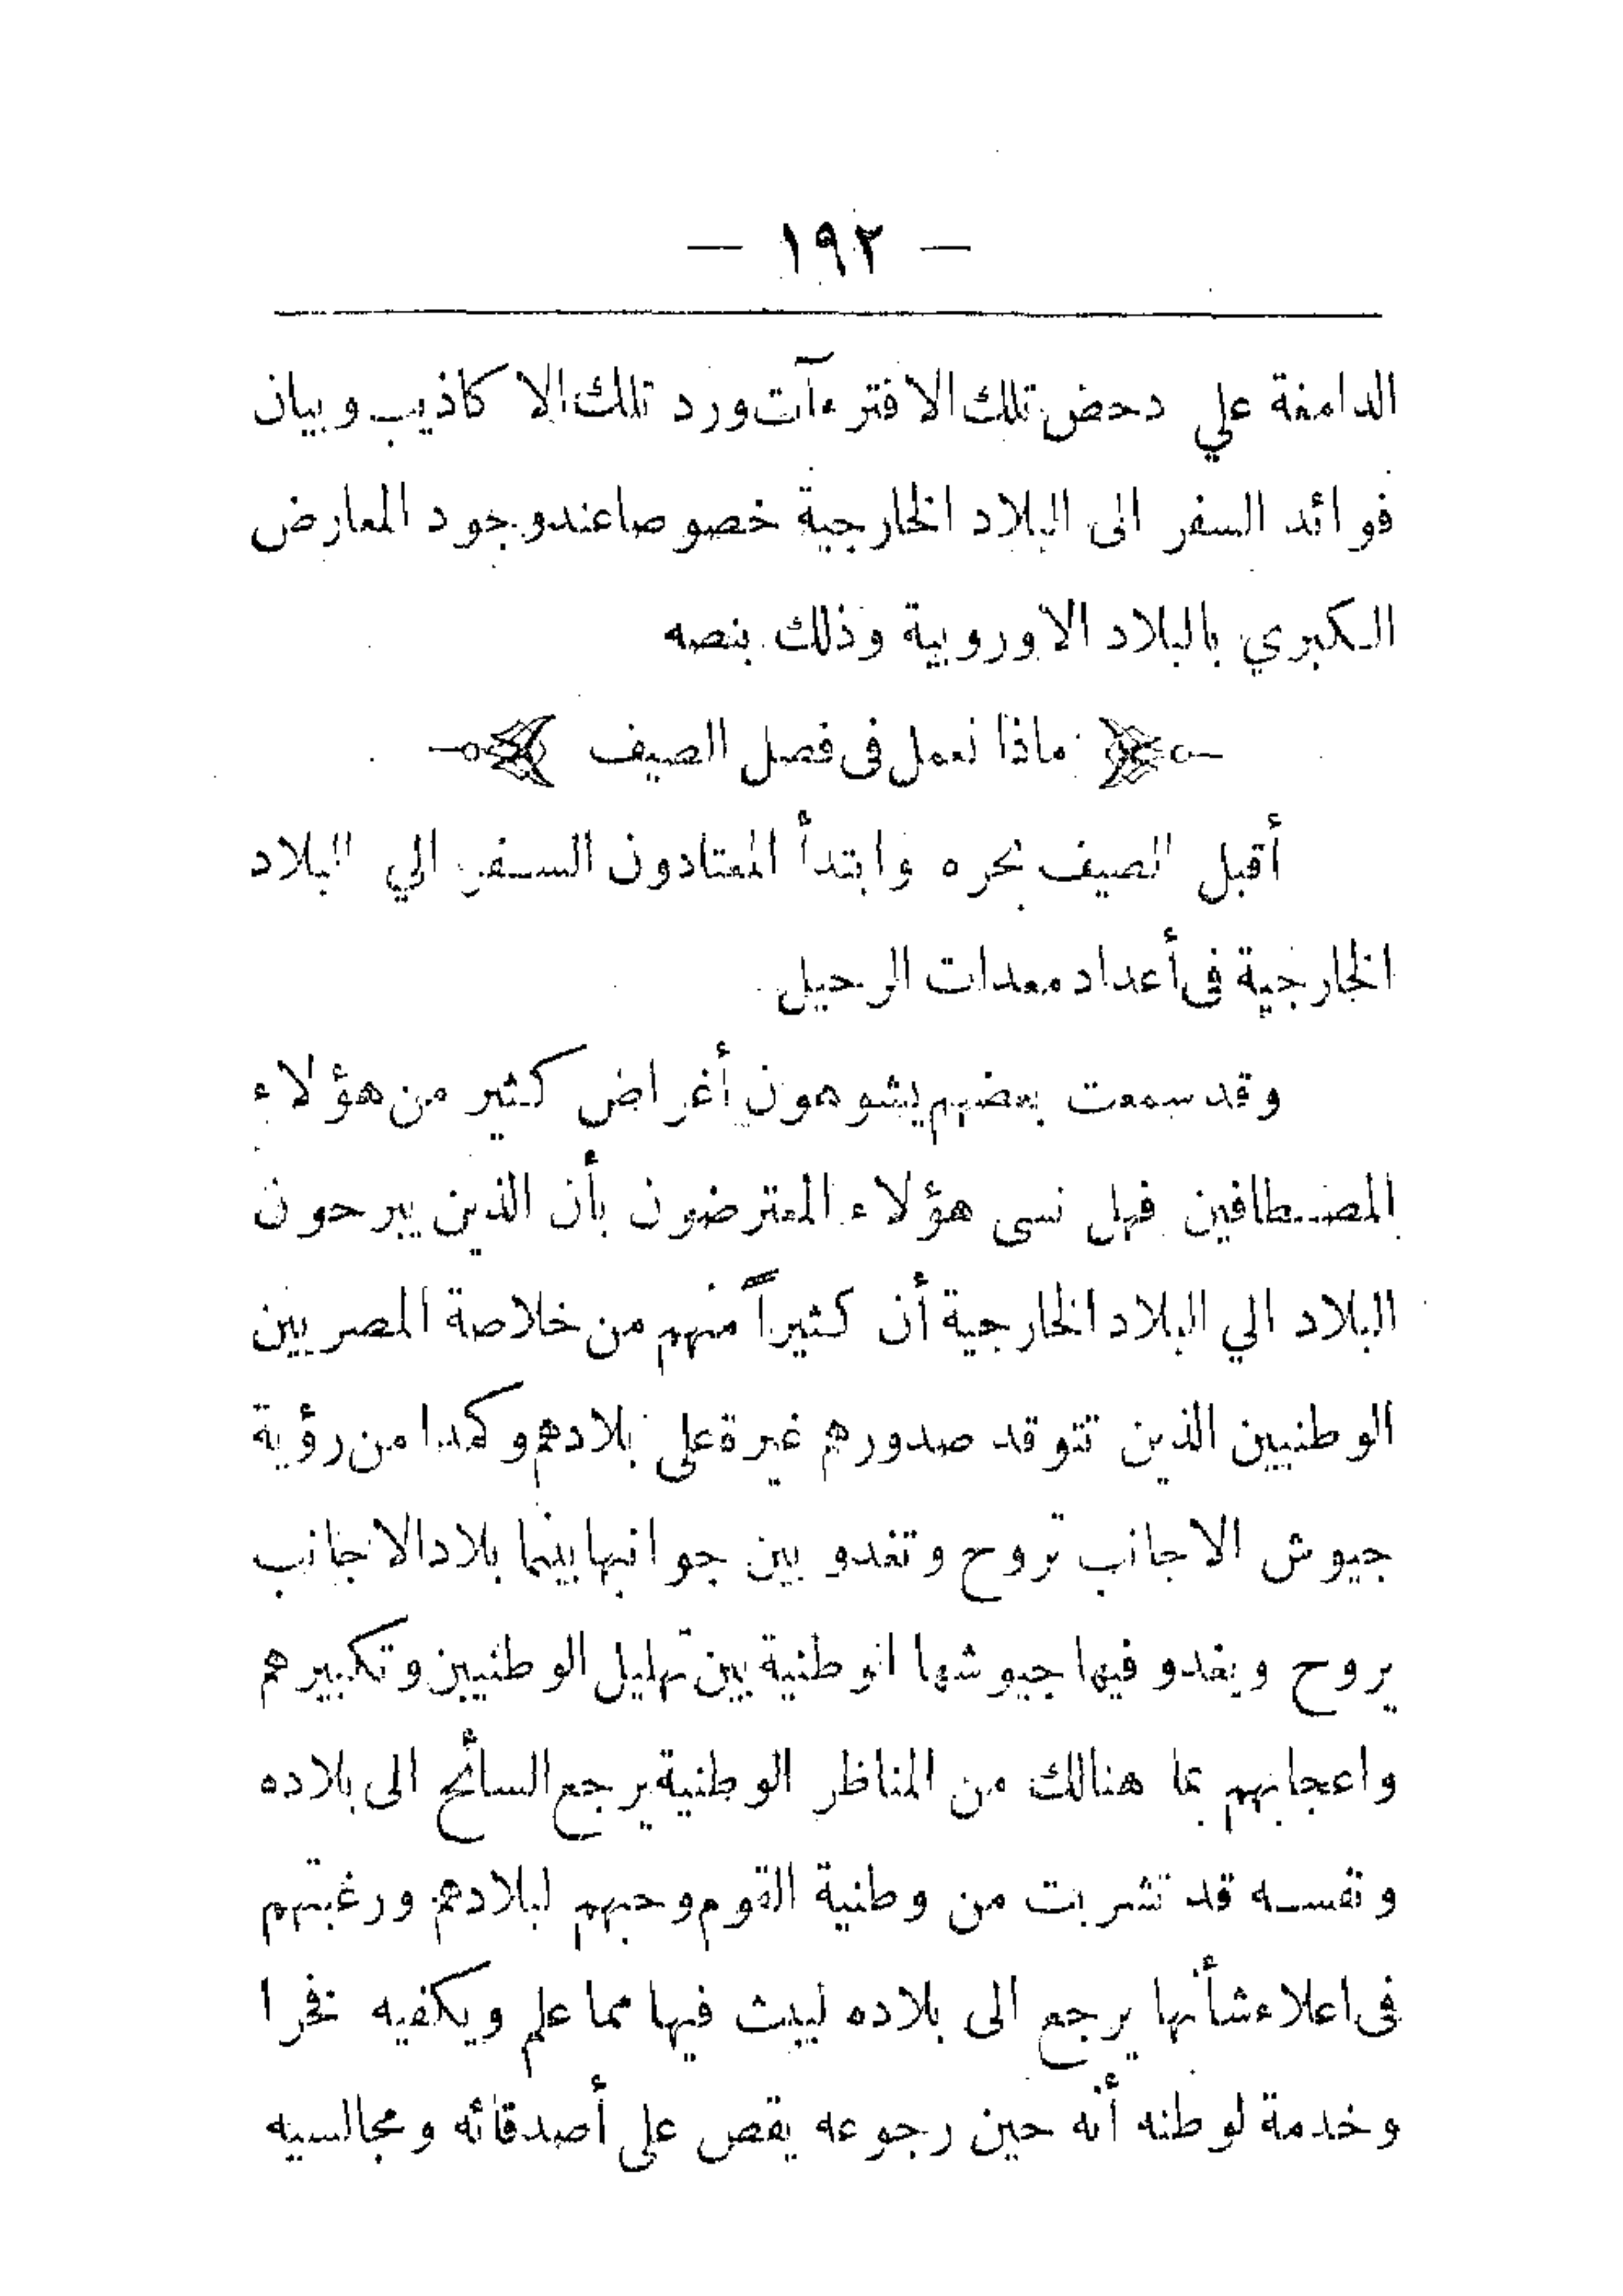 — ١٩٢ —
الدامغة علي دحض تلك الافترءآت ورد تلك الاكاذيب وبيان
فوائد السفر الى البلاد الخارجية خصوصا عند وجود المعارض
الكبري بالبلاد الاوروبية وذلك بنصه
ماذا نعمل فى فصل الصيف
أقبل الصيف بحره وابتدأ المعتادون السفر الي البلاد
الخارجية فى أعداد معدات الرحيل
وقد سمعت بعضهم يشوهون أغراض كثير من هؤلاء
المصطافين فهل نسى هؤلاء المعترضون بأن الذين يبرحون
البلاد الي البلاد الخارجية أن كثيراً منهم من خلاصة المصريين
الوطنيين الذين تتوقد صدورهم غيرة على بلادهم وكمدا من رؤية
جيوش الاجانب تروح وتغدو بين جوانبها بينما بلاد الاجانب
يروح ويغدو فيها جيوشها الوطنية بين تهليل الوطنيين وتكبيرهم
واعجابهم بما هنالك من المناظر الوطنية يرجع السائح الى بلاده
ونفسه قد تشربت من وطنية القوم وحبهم لبلادهم ورغبتهم
فى اعلاء شأنها يرجع الى بلاده ليبث فيها مما علم ويكفيه فخرا
وخدمة لوطنه أنه حين رجوعه يقص على أصدقائه ومجالسيه